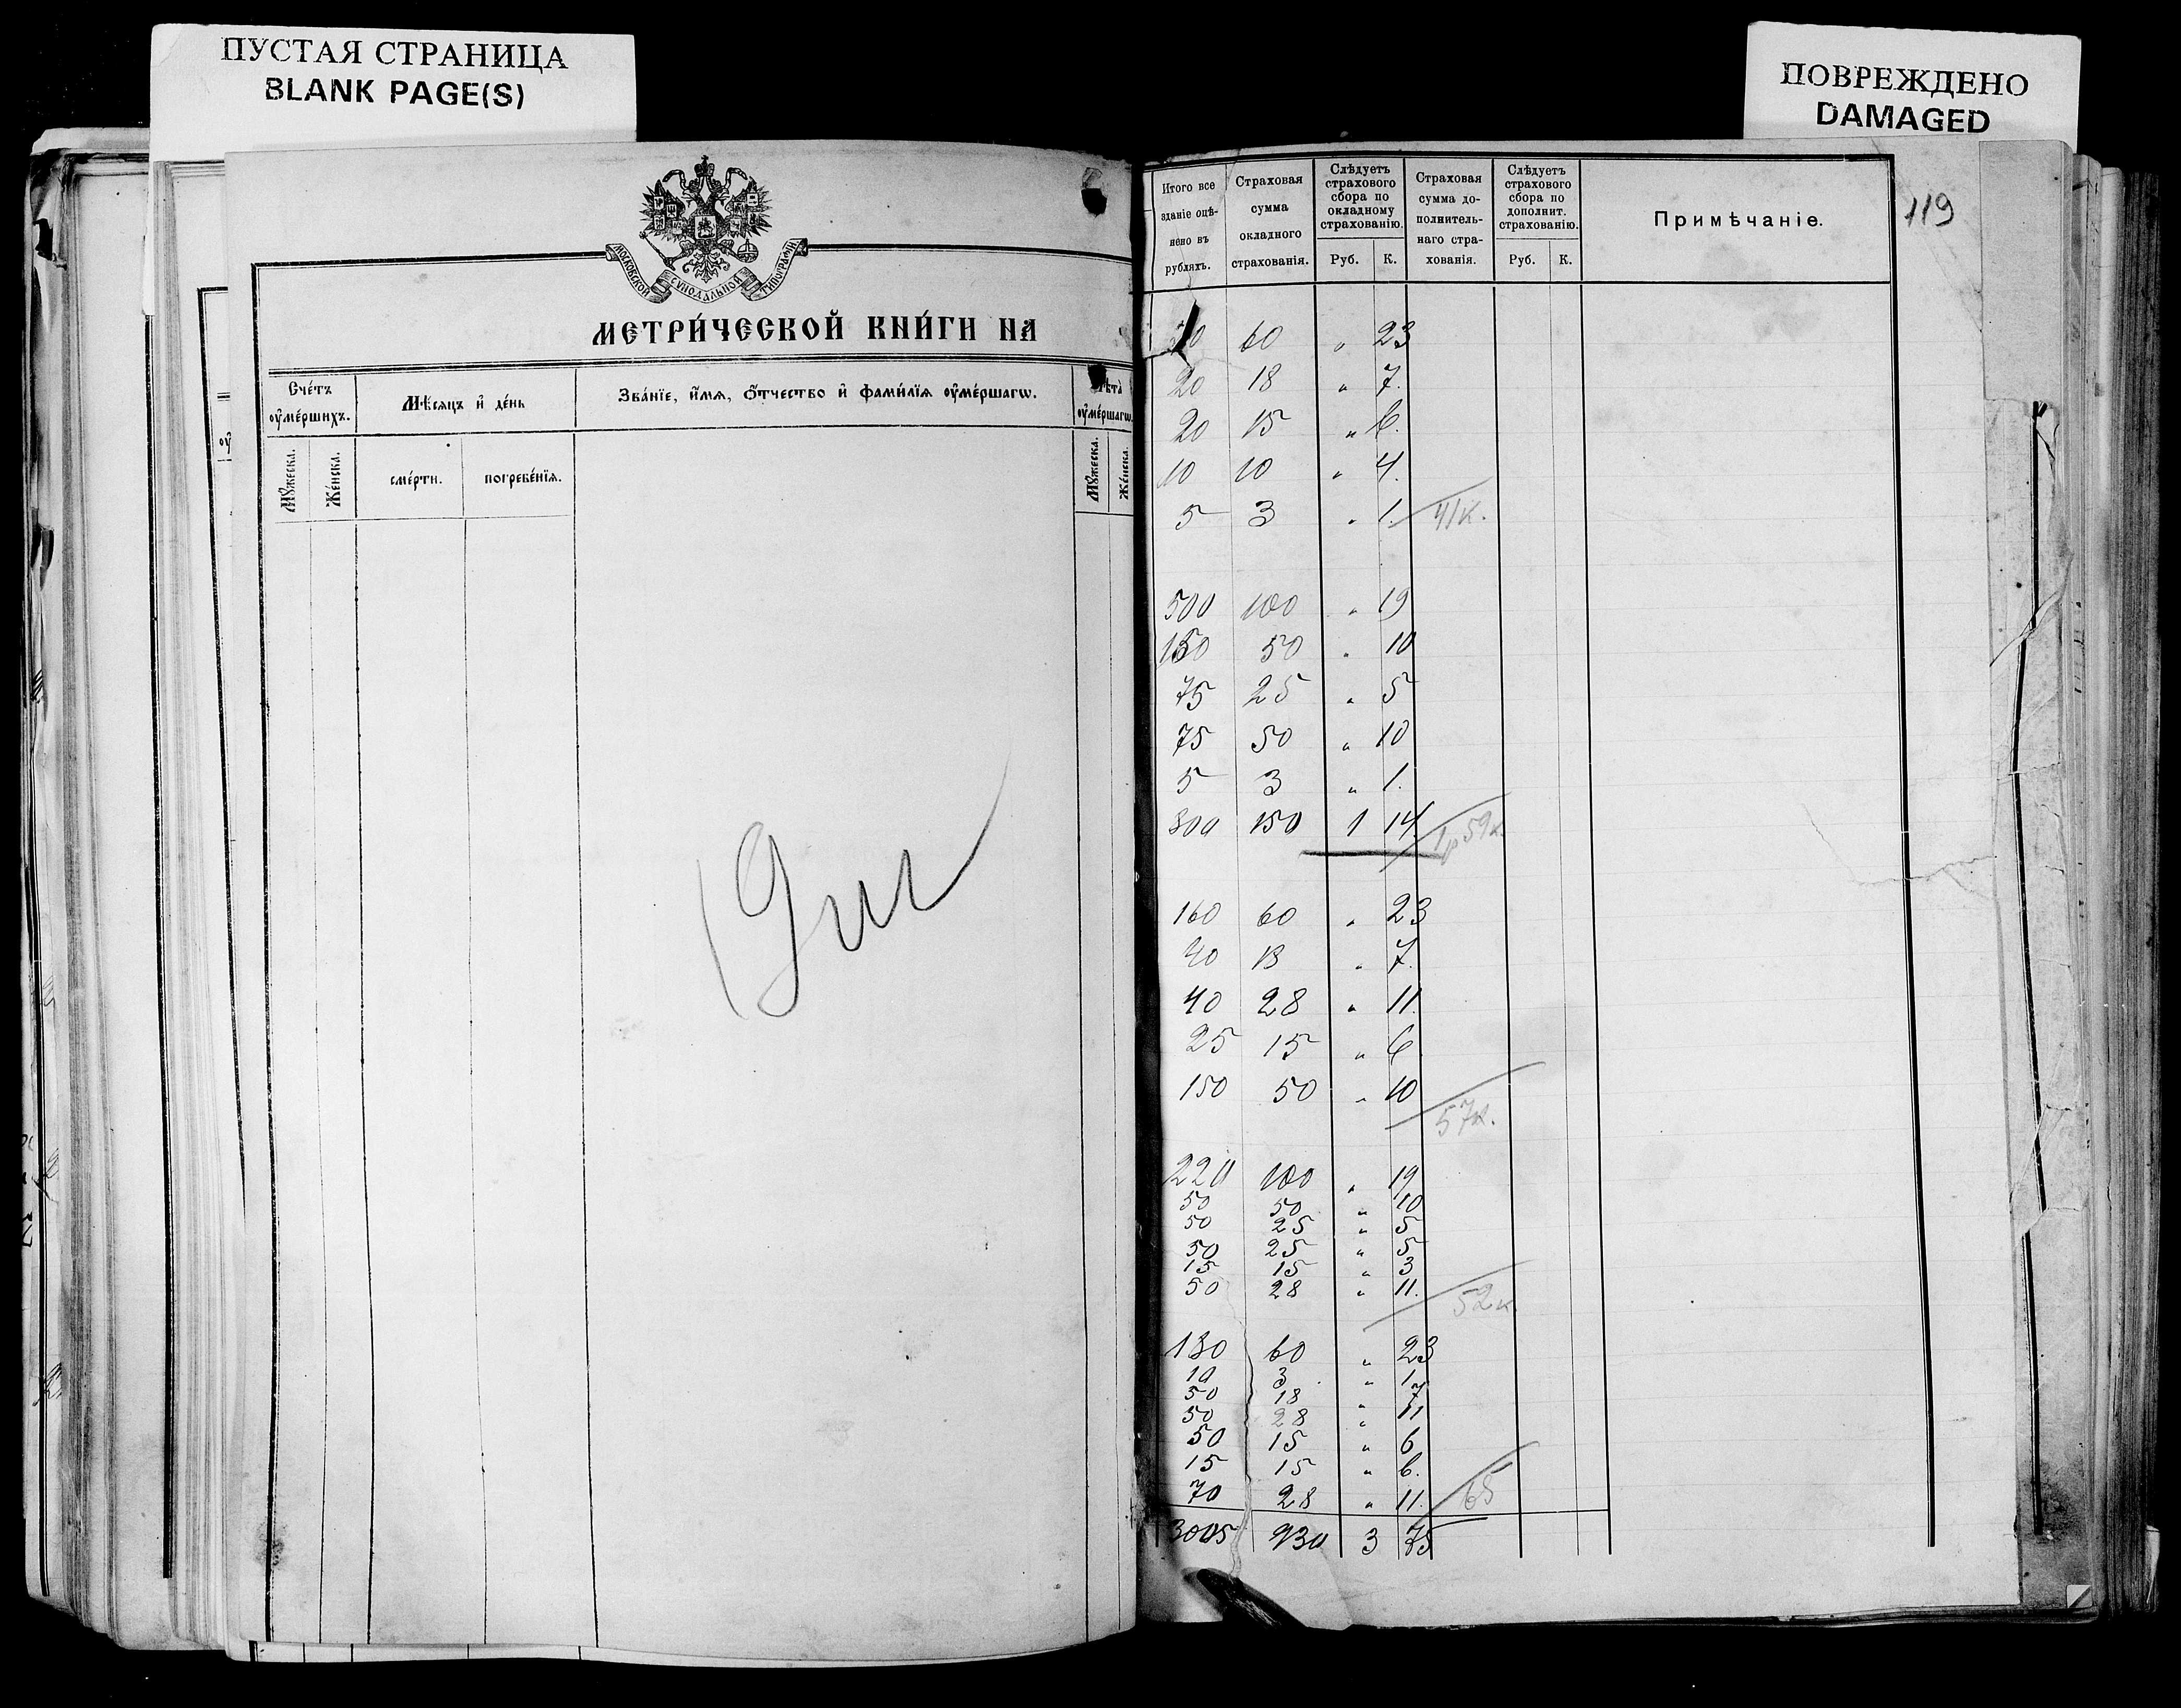 ПУСТАЯ СТРАНИЦА
BLANK PAGE(S)
ПОВРЕЖДЕНО
DAMAGED
МОСКОВСКОЙ СУНОДАЛЬНОЙ ТИПОГРАФІИ
МЕТРИ́ЧЕСКОЙ КНИ́ГИ НА
Сче́тъ ᲂу҆ме́ршихъ.
Мѣ́сяцъ и҆ де́нь
Зва́нїе, и҆́мѧ, ѻ҆́тчество и҆ фами́лїѧ ᲂу҆ме́ршагѡ.
Лѣ́та ᲂу҆ме́ршагѡ.
Мꙋ́жеска.
Же́нска.
сме́рти.
погребе́нїѧ.
Мꙋ́жеска.
Же́нска.
119
Итого все зданіе оцѣнено въ рубляхъ.
Страховая сумма окладного страхованія.
Слѣдуетъ страхового сбора по окладному страхованію.
Руб. К.
Страховая сумма дополнительнаго страхованія.
Слѣдуетъ страхового сбора по дополнит. страхованію.
Руб. К.
Примѣчаніе.
60 „ 23
20 18 „ 7.
20 15 „ 6.
10 10 „ 4.
5 3 „ 1. 41к.
500 100 „ 19
150 50 „ 10
75 25 „ 5
75 50 „ 10
5 3 „ 1.
300 150 1 14. 1р59к
160 60 „ 23
40 18 „ 7.
40 28 „ 11.
25 15 „ 6
150 50 „ 10
57к.
220 100 „ 19
50 50 „ 10
50 25 „ 5
50 25 „ 5
15 15 „ 3
50 28 „ 11.
52к.
180 60 „ 23
10 3 „ 1
50 18 „ 7
50 28 „ 11
50 15 „ 6
15 15 „ 6.
70 28 „ 11. 65
3005 930 3 75